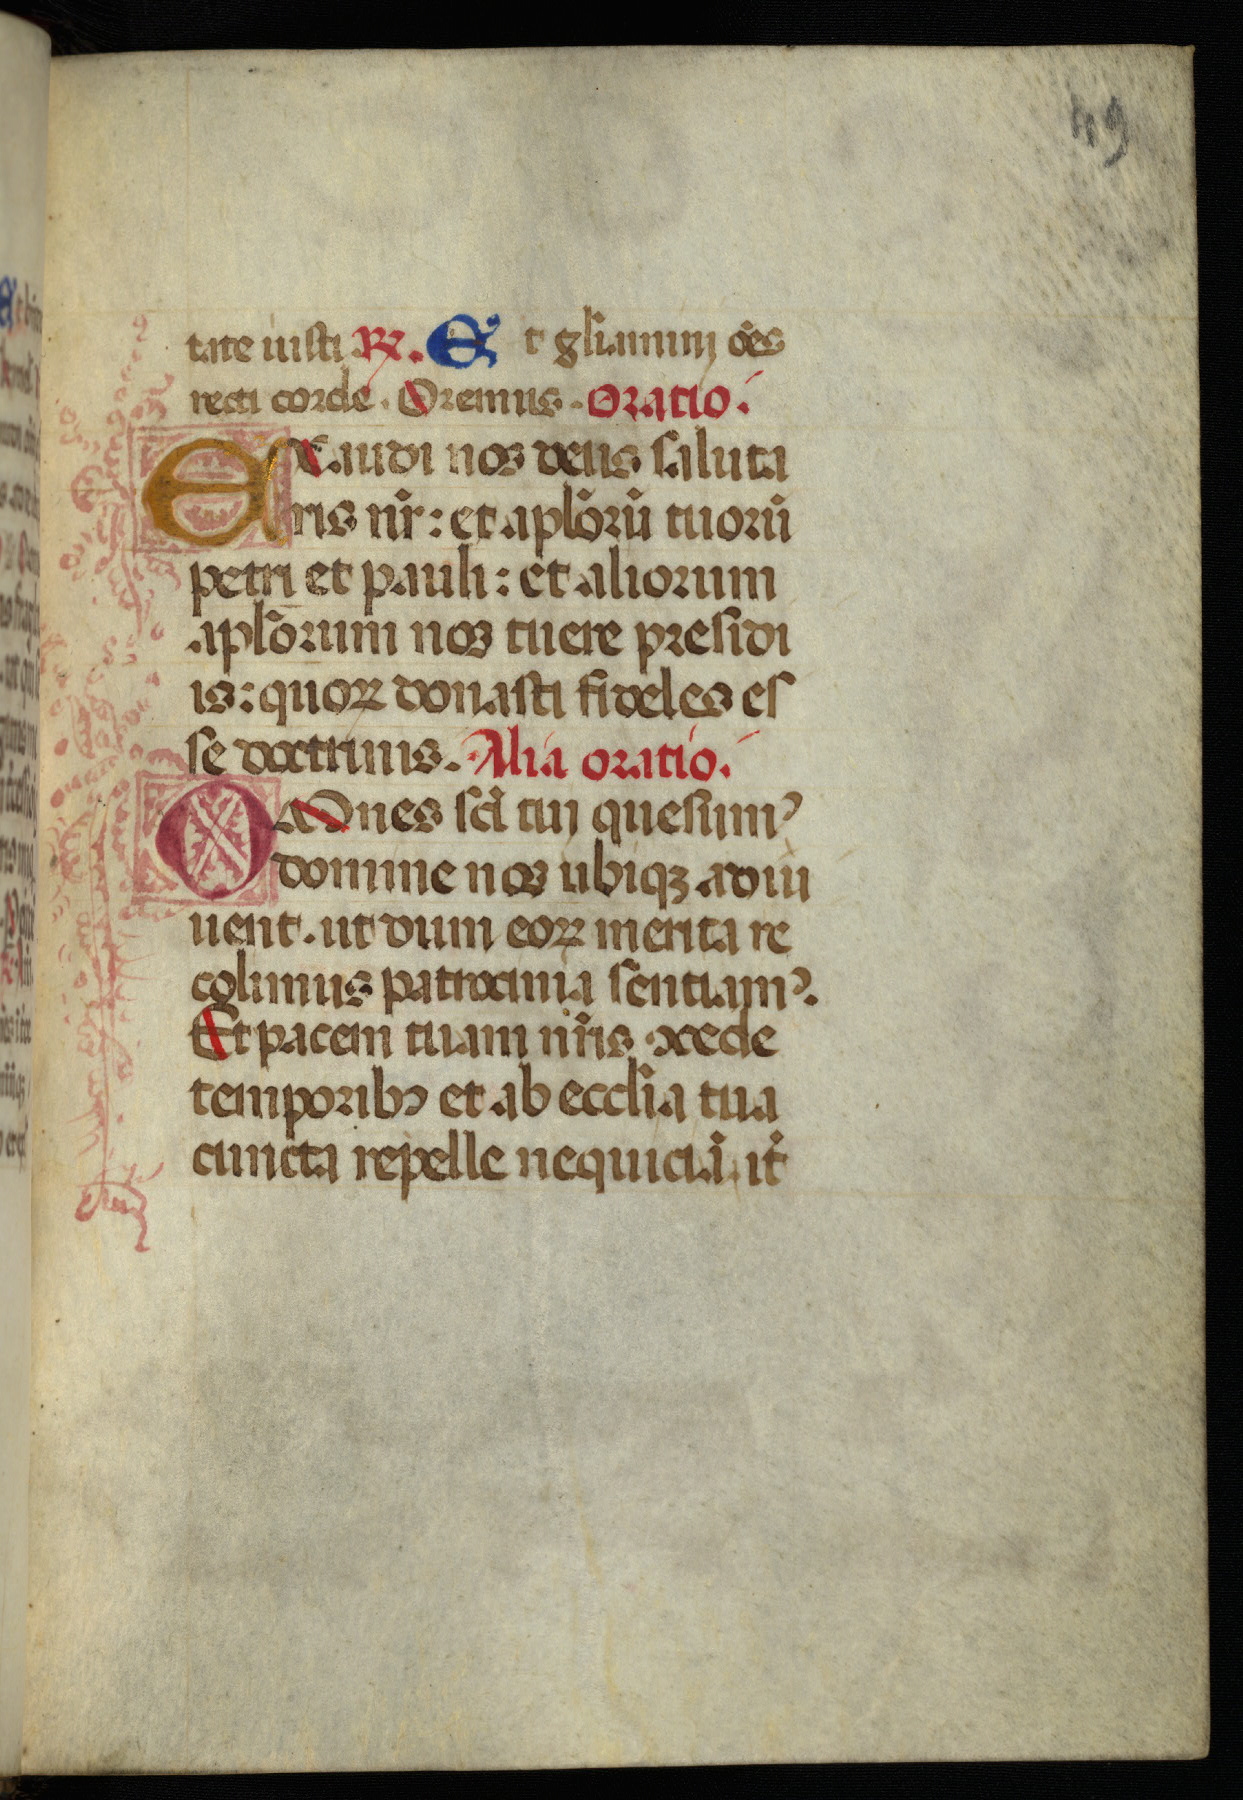 49
tate iusti R. Et gl̃iamini om̃s
recti corde. Oremus. Oratio.
Exaudi nos deus saluta
ris nr̃: et apl̃orũ tuorũ
petri et pauli: et aliorum
apl̃orum nos tuere presidi
is: quoꝝ donasti fideles es
se doctrinis. Alia oratio.
OMnes sc̃i tui quesumꝰ
domine nos ubiqꝫ adiu
uent. ut dum eoꝝ merita re
colimus patrocinia sentiamꝰ.
Et pacem tuam nr̃is ꝯcede
temporibꝰ et ab eccl̃ia tua
cuncta repelle nequiciã. it̃